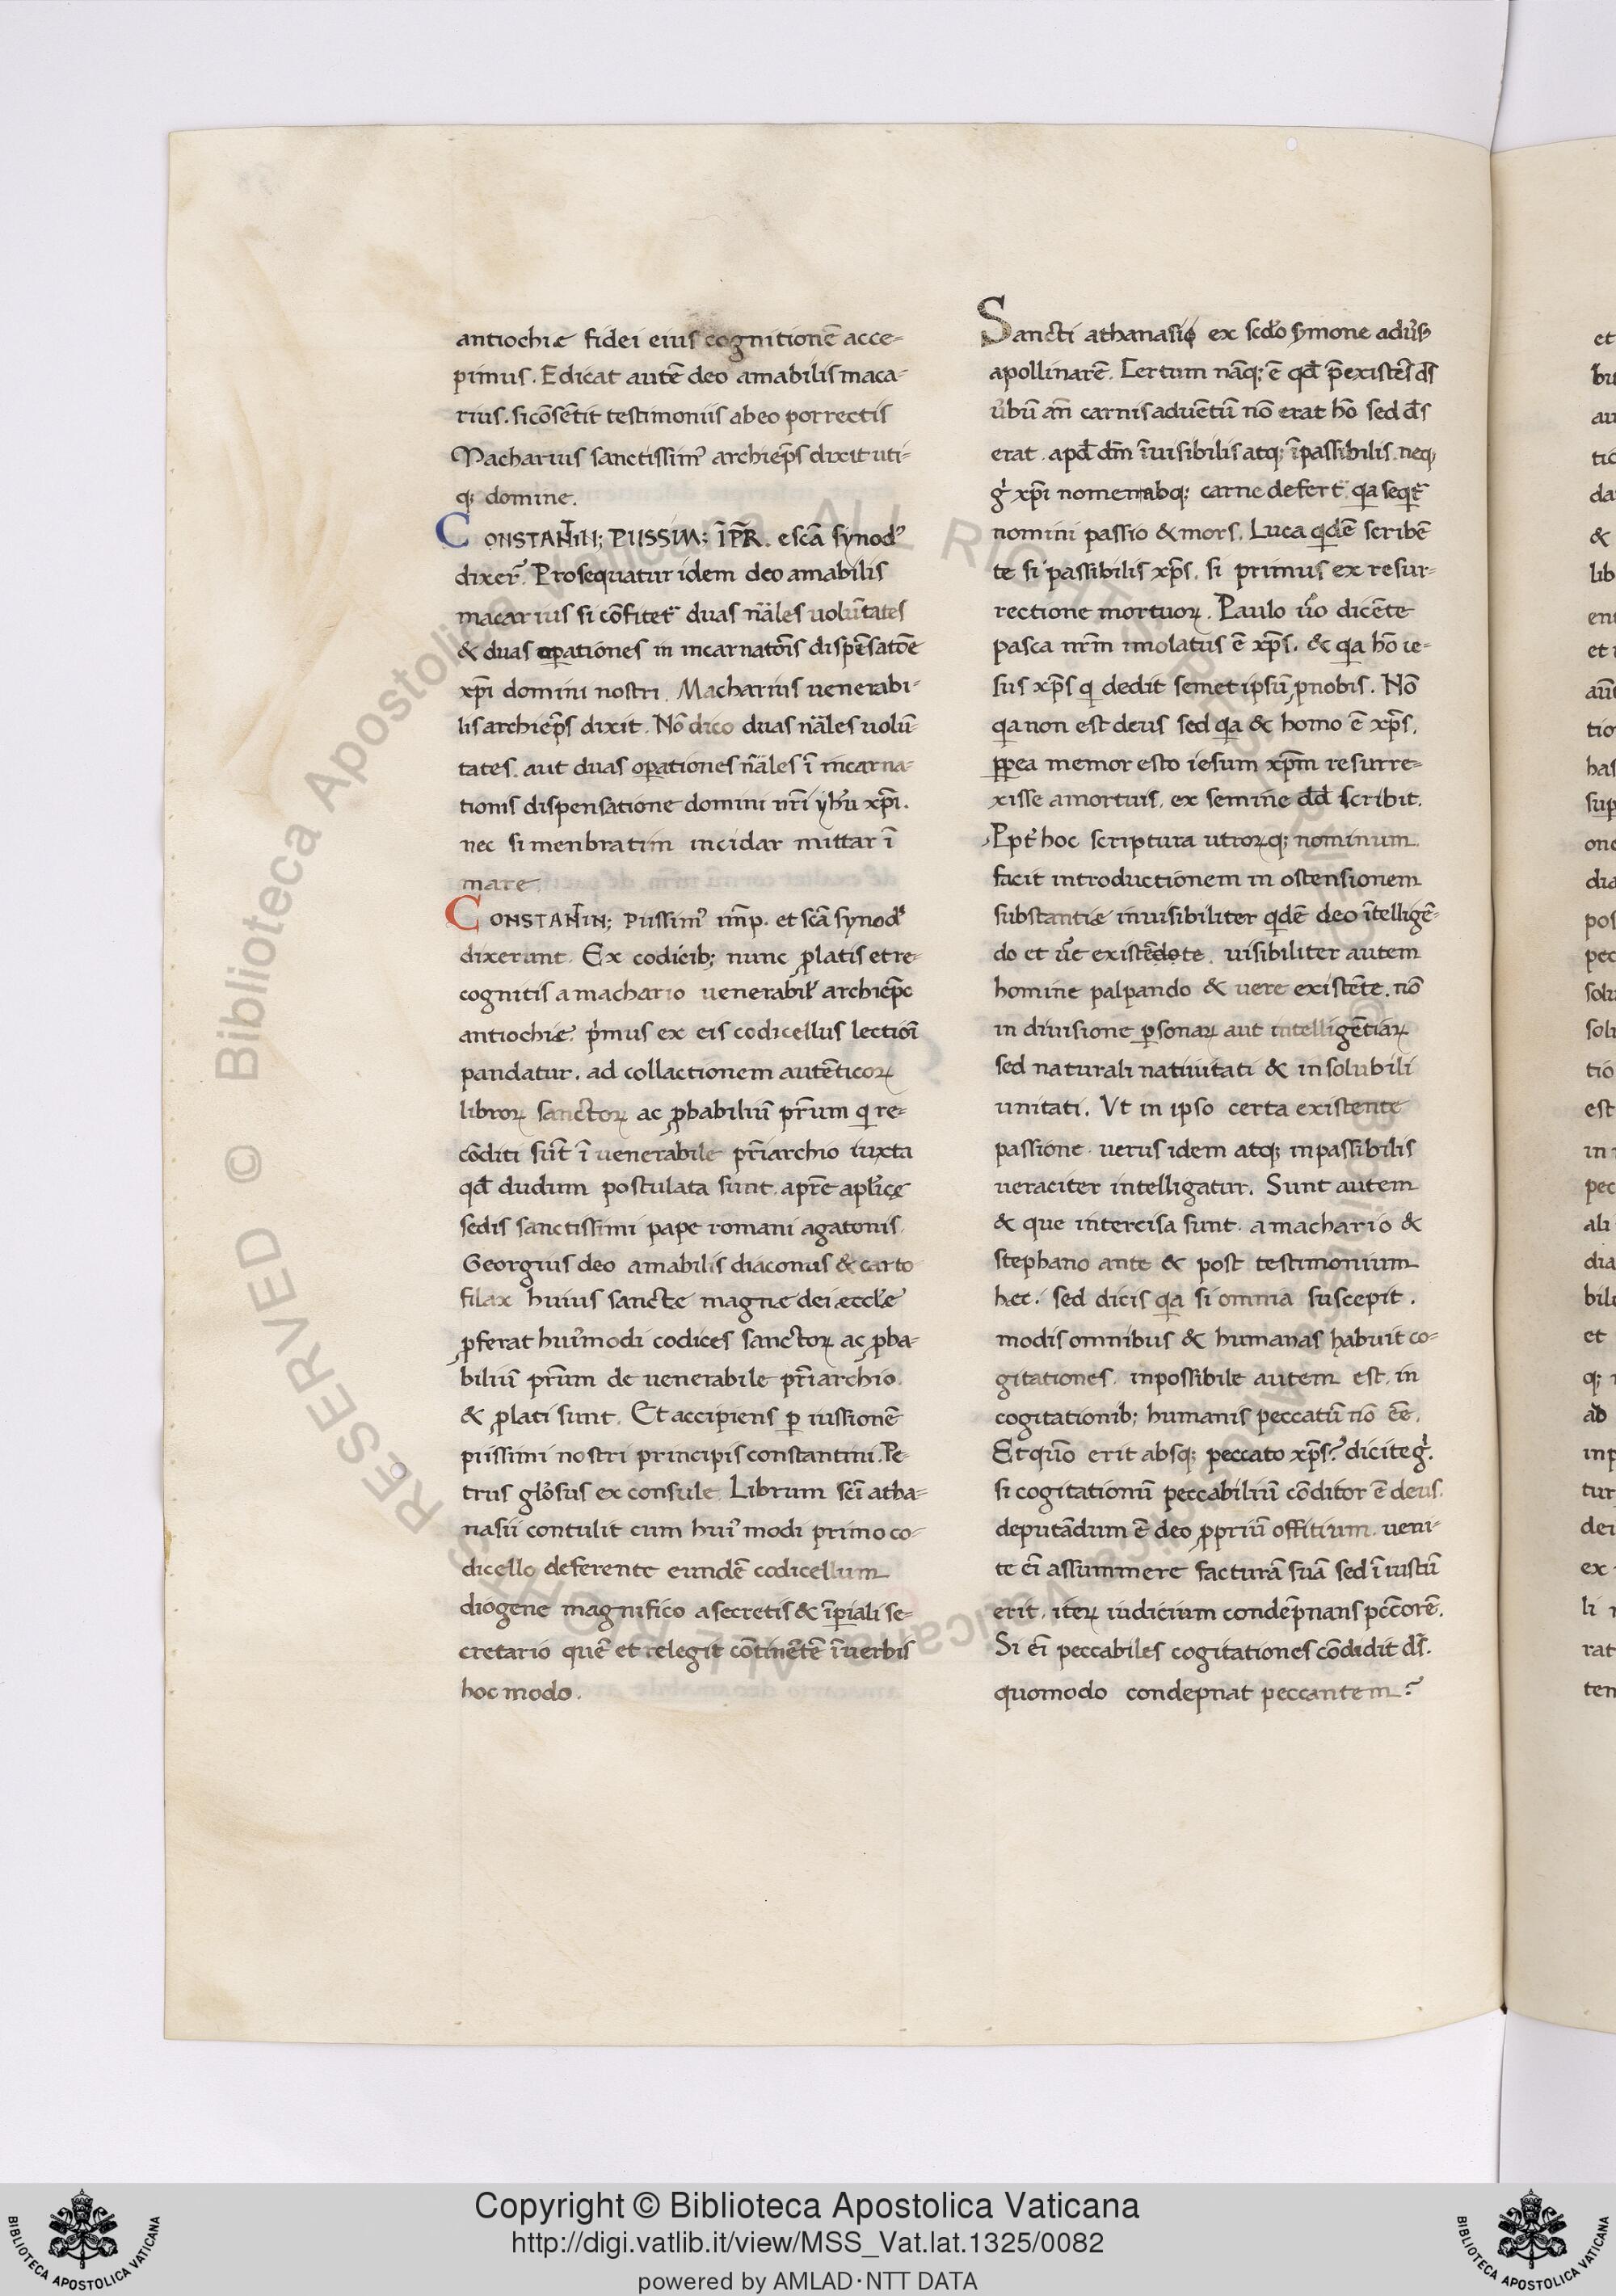 antiochiæ fidei eius cognitionē acce-
pimus. Edicat autē deo amabilis maca-
rius. si cōsētit testimoniis ab eo porrectis
Macharius sanctissimꝰ archiep̄s dixit uti-
q; domine.
CONSTANTIN; PIISSIM; IP̄R. e sc̄a synodꝰ
dixer̄. Prosequatur idem deo amabilis
macarius si cōfitet᷑ duas nāles uolūtates
& duas oꝑationes in incarnatōis dispēsatōe
xp̄i domini nostri. Macharius uenerabi-
lis archiep̄s dixit. Nō dico duas nāles uolū-
tates. aut duas oꝑationes nāles ī incarna-
tionis dispensatione domini nr̄i yhū xp̄i.
nec si menbratim incidar mittar ī
mare.
CONSTANTIN; piissimꝰ imp. et sc̄a synodꝰ
dixerunt. Ex codicib; nunc ꝓlatis et re-
cognitis a machario uenerabil̛ archiep̄c
antiochiæ. p̛mus ex eis codicellus lectiōi
pandatur. ad collactionem autēticoꝝ
libroꝝ sanctoꝝ ac ꝓbabiliū pr̄um q re-
cōditi sūt ī uenerabile pr̄iarchio iuxta
qđ dudum postulata sunt. apr̄e apl̛icę
sedis sanctissimi pape romani agatonis.
Georgius deo amabilis diaconus & carto
filax huius sancte magnæ dei æccl̛e
ꝓferat huiꝰmodi codices sanctoꝝ ac ꝓba-
biliū pr̄um de uenerabile pr̄iarchio.
& ꝓlati sunt. Et accipiens ꝑ iussionē
piissimi nostri principis constantini. Pe-
trus glōsus ex consule. Librum sc̄i atha-
nasii contulit cum huiꝰmodi primo co-
dicello deferente eundē codicellum
diogene magnifico a secretis & īꝑiali se-
cretario quē et relegit cōtinētē ī uerbis
hoc modo.
Sancti athanasii ex scd̛o symone adưs
apollinarē. Certum nāq; ē qđ p̄existēs d̄s
ưbū an̄ carnis aduētū nō erat hō sed d̄s
erat. apđ dm̄ īuisibilis atq; īpassibilis. neq;
g̛ xp̄i nomen abq; carne defert. qa seqt᷑
nomini passio & mors. Luca qdē scribē
te si passibilis xp̄s. si primus ex resur-
rectione mortuoꝝ. Paulo ưo dicēte
pasca nr̄m imolatus ē xp̄s. & qa hō ie-
sus xp̄s q dedit semetipsū ꝓnobis. Nō
qa non est deus sed qa & homo ē xp̄s.
ꝓpea memor esto iesum xp̄m resurre-
xisse a mortuis. ex semine dđ scribit.
Ppt̛ hoc scriptura utroꝝq; nominum
facit introductionem in ostensionem
substantiæ inuisibiliter qdē deo ītelligē-
do et ưe existēdote. uisibiliter autem
homine palpando & uere existēte. nō
in diuisione ꝑsonaꝝ aut intelligētiaꝝ
sed naturali natiuitati & insolubili
unitati. Vt in ipso certa existente
passione. uerus idem atq; inpassibilis
ueraciter intelligatur. Sunt autem
& que intercisa sunt. a machario &
stephano ante & post testimonium
hec. sed dicis qa si omnia suscepit.
modis omnibus & humanas habuit co-
gitationes. inpossibile autem est. in
cogitationib; humanis peccatū nō ēe.
Et quō erit absq; peccato xp̄s? dicite g̛.
si cogitationū peccabiliū cōditor ē deus.
deputādum ē deo ꝓpriū offitium. ueni-
te ēi assummere facturā suā sed ī iustū
erit. iteꝝ iudicium condēpnans pcc̄orē.
Si ēi peccabiles cogitationes cōdidit d̄s.
quomodo condepnat peccantem?
et
Copyright © Biblioteca Apostolica Vaticana
http://digi.vatlib.it/view/MSS_Vat.lat.1325/0082
powered by AMLAD·NTT DATA
BIBLIOTECA APOSTOLICA VATICANA
BIBLIOTECA APOSTOLICA VATICANA